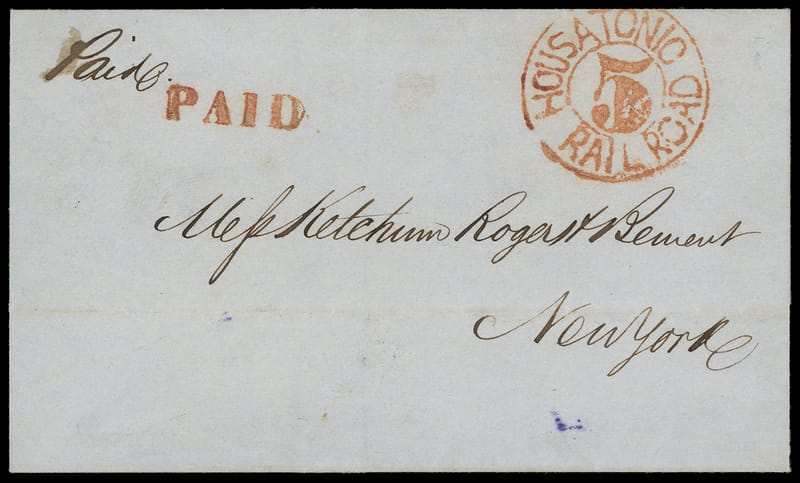 Paid.
PAID
HOUSATONIC RAILROAD
5
Mess Ketchum Rogers & Bement
New York